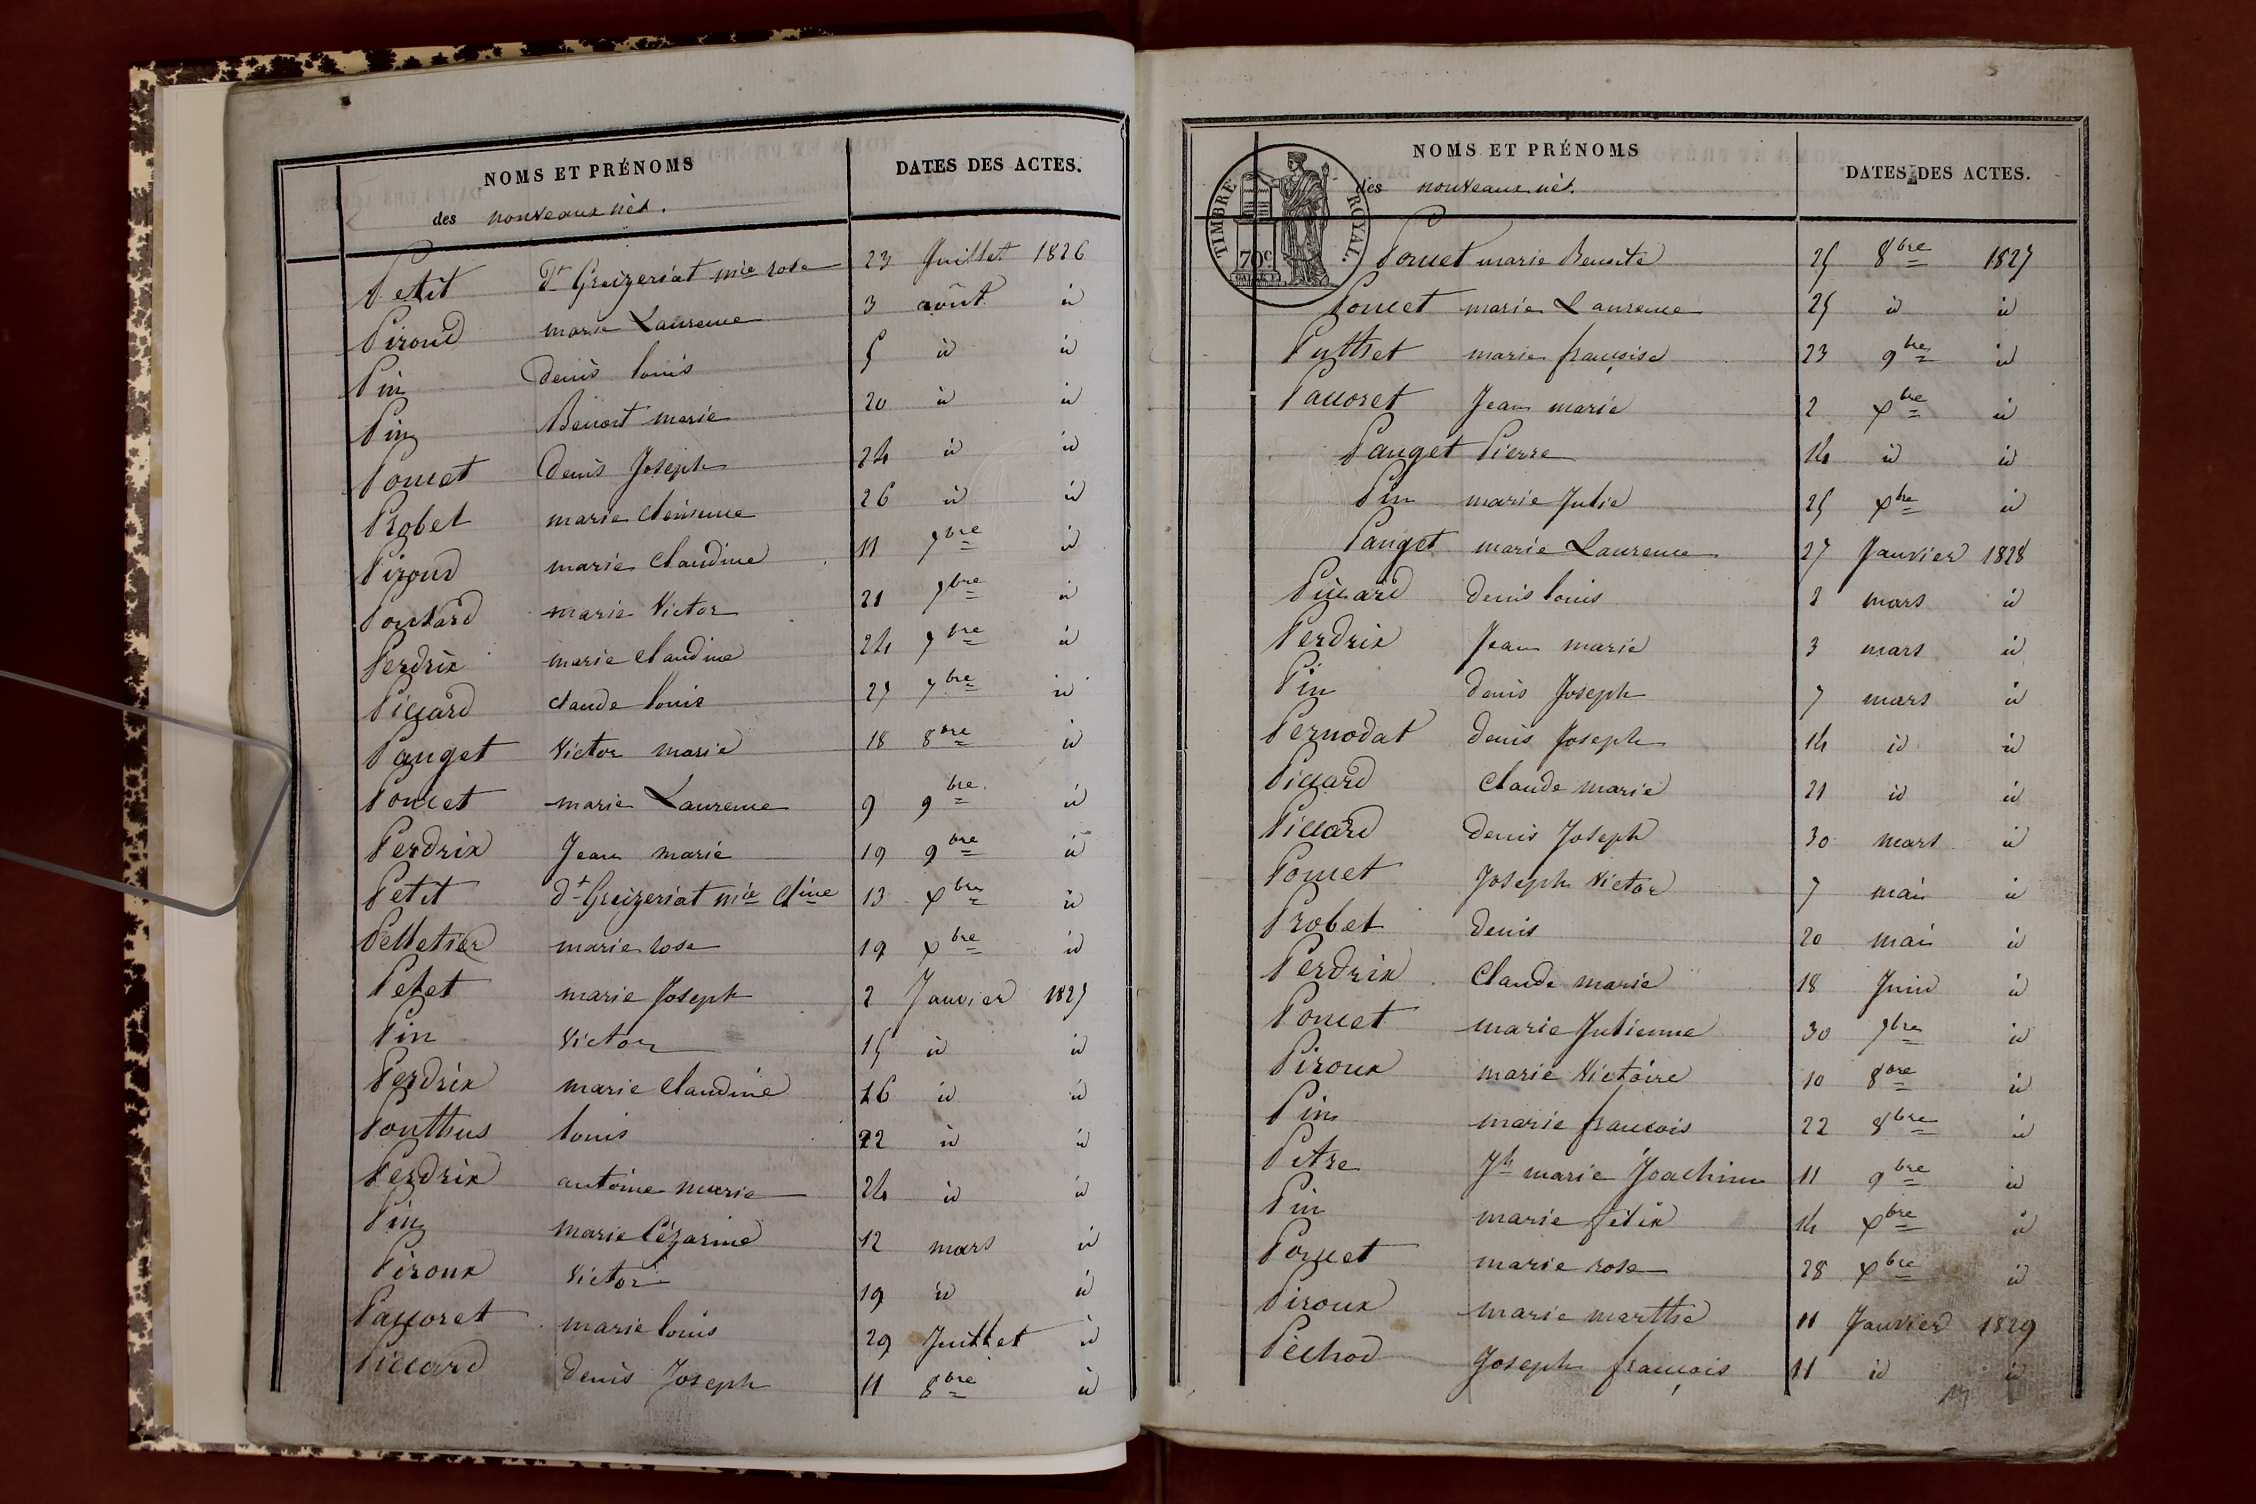 NOMS ET PRÉNOMS DATES DES ACTES.
des nouveaux nés.
Petit dt Greizeriat mie rose 23 Juillet 1826
Piroud marie Laurence 3 août id
Pin denis louis 5 id id
Pin Benoit marie 20 id id
Poncet denis Joseph 24 id id
Probet marie clémence 26 id id
Piroud marie claudine 11 7bre id
Ponthard marie Victor 21 7bre id
Perdrix marie claudine 24 7bre id
Piccard claude louis 27 7bre id
Pauget Victor marie 18 8bre id
Poncet marie Laurence 9 9bre id
Perdrix Jean marie 19 9bre id
Petit dt Greizeriat mie Cline 13 xbre id
Pelletier marie rose 19 xbre id
Petet marie Joseph 2 Janvier 1827
Pin Victor 15 id id
Perdrix marie claudine 16 id id
Ponthus louis 22 id id
Perdrix antoine marie 24 id id
Pin marie Cézarine 12 mars id
Piroux Victor 19 id id
Paccoret marie louis 29 Juillet id
Piccard denis Joseph 11 8bre id
NOMS ET PRÉNOMS DATES DES ACTES.
des nouveaux nés.
TIMBRE ROYAL.
70c
Poncet marie Benoite 25 8bre 1827
Poncet marie Laurence 25 id id
Puthet marie françoise 23 9bre id
Paccoret Jean marie 2 xbre id
Pauget Pierre 14 id id
Pin marie Julie 25 xbre id
Pauget marie Laurence 27 Janvier 1828
Piccard denis louis 2 mars id
Perdrix Jean marie 3 mars id
Pin denis Joseph 7 mars id
Pernodat denis Joseph 14 id id
Piccard Claude marie 21 id id
Piccard denis Joseph 30 mars id
Poncet Joseph Victor 7 mai id
Probet denis 20 mai id
Perdrix Claude marie 18 Juin id
Poncet marie Julienne 30 7bre id
Piroux marie Victoire 10 8bre id
Pin marie francois 22 8bre id
Petre Jh marie Joachim 11 9bre id
Pin marie félix 14 xbre id
Poncet marie rose 28 xbre id
Piroux marie marthe 11 Janvier 1829
Péchod Joseph françois 11 id id